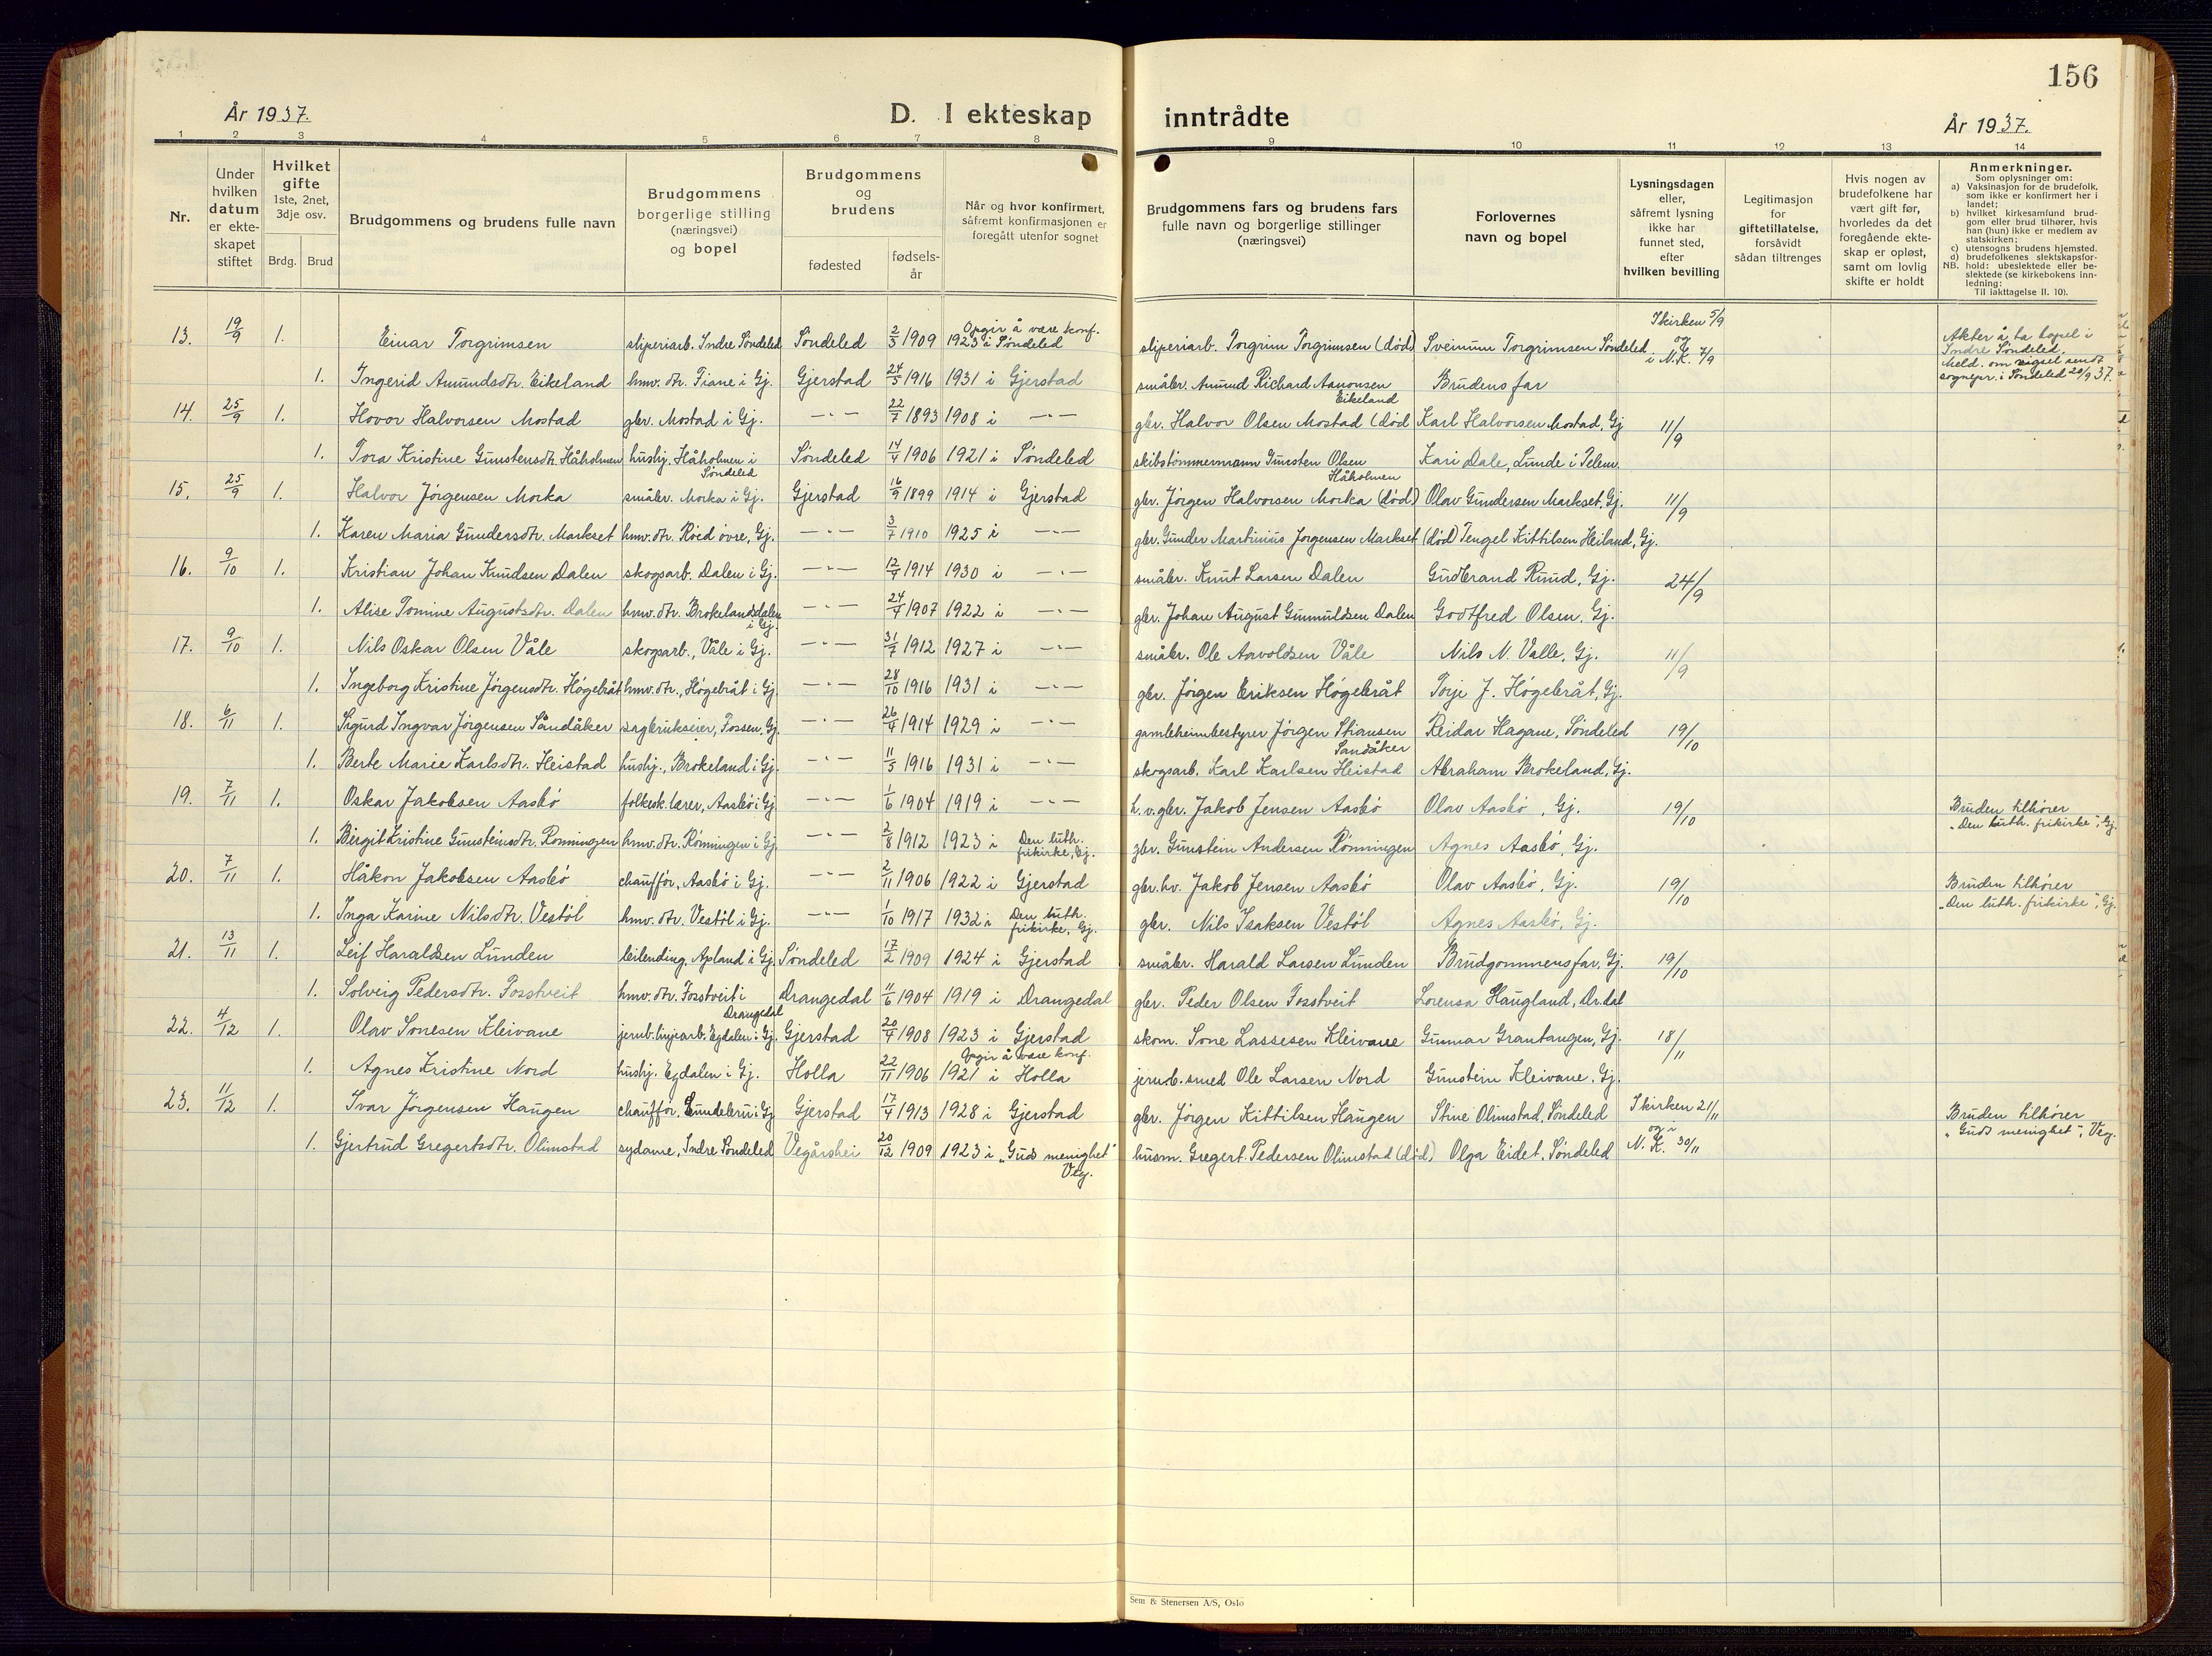 156
År 1937. D. I ekteskap inntrådte År 1937.
1 2 3 4 5 6 7 8 9 10 11 12 13 14
Nr.
Under hvilken datum er ekte-skapet stiftet
Hvilket gifte 1ste, 2net, 3dje osv.
Brdg. Brud
Brudgommens og brudens fulle navn
Brudgommens borgerlige stilling (næringsvei) og bopel
Brudgommens og brudens
fødested
fødsels-år
Når og hvor konfirmert, såfremt konfirmasjonen er foregått utenfor sognet
Brudgommens fars og brudens fars fulle navn og borgerlige stillinger (næringsvei)
Forlovernes navn og bopel
Lysningsdagen eller, såfremt lysning ikke har funnet sted, efter hvilken bevilling
Legitimasjon for giftetillatelse, forsåvidt sådan tiltrenges
Hvis nogen av brudefolkene har vært gift før, hvorledes da det foregående ekte-skap er opløst, samt om lovlig skifte er holdt
Anmerkninger.
Som oplysninger om:
a) Vaksinasjon for de brudefolk, som ikke er konfirmert her i landet;
b) hvilket kirkesamfund brud-gom eller brud tilhører, hvis han (hun) ikke er medlem av statskirken;
c) utensogns brudens hjemsted.
d) brudefolkenes slektskapsfor-
NB. hold: ubeslektede eller be-slektede (se kirkebokens inn-ledning:
Til iakttagelse II. 10).
13. 19/9 1. Einar Torgrimsen sliperiarb. Indre Søndeled Søndeled 2/3 1909 Opgir å være konf. 1923 i Søndeled sliperiarb. Torgrim Torgrimsen (død) Sveinum Torgrimsen Søndeled I kirken 5/9 og i N.K. 7/9 Akter å ta bopel i Indre Søndeled. Meld. om vigsel sendt sognepr. i Søndeled 20/9 37.
1. Ingerid Amundsdtr. Eikeland hmv. dtr. Fiane i Gj. Gjerstad 24/5 1916 1931 i Gjerstad småbr. Amund Richard Aanonsen Eikeland Brudens far
14. 25/9 1. Hovor Halvorsen Mostad gbr. Mostad i Gj. —"— 22/7 1893 1908 i —"— gbr. Halvor Olsen Mostad (død Karl Halvorsen Mostad, Gj 11/9
1. Tora Kristine Gunstensdtr. Håholmen hushj. Håholmen i Søndeled Søndeled 14/4 1906 1921 i Søndeled skibstømmermann Gunsten Olsen Håholmen Kari Dale, Lunde i Telem.
15. 25/9 1. Halvor Jörgensen Morka småbr. Morka i Gj. Gjerstad 16/9 1899 1914 i Gjerstad gbr. Jörgen Halvorsen Morka (død) Olav Gundersen Markset, Gj. 11/9
1. Karen Maria Gundersdtr. Markset hmv. dtr. Röed övre, Gj. —"— 3/7 1910 1925 i —"— gbr. Gunder Martinius Jörgensen Markset (död) Tengel Kittilsen Heiland, Gj.
16. 9/10 1. Kristian Johan Knudsen Dalen skogsarb. Dalen i Gj. —"— 12/9 1914 1930 i —"— småbr. Knut Larsen Dalen Gudbrand Ruud, Gj. 24/9
1. Alise Tomine Augustsdtr. Dalen hmv. dtr. Brokelandsdalen i Gj. —"— 24/4 1907 1922 i —"— gbr. Johan August Gunnuldsen Dalen Godtfred Olsen, Gj.
17. 9/10 1. Nils Oskar Olsen Våle skogsarb., Våle i Gj. —"— 31/7 1912 1927 i —"— småbr. Ole Aavoldsen Våle Nils N. Valle, Gj. 11/9
1. Ingeborg Kristine Jörgensdtr. Högebråt hmv. dtr., Högebråt i Gj. —"— 28/10 1916 1931 i —"— gbr. Jörgen Eriksen Högebråt Torje J. Högebråt, Gj.
18. 6/11 1. Sigurd Ingvar Jörgensen Sandåker sagbrukseier, Fossen, Gj. —"— 26/4 1914 1929 i —"— gamleheimbestyrer Jörgen Stiansen Sandåker Reidar Hagane, Söndeled 19/10
1. Berte Marie Karlsdtr. Heistad hushj., Brokeland i Gj. —"— 11/5 1916 1931 i —"— skogsarb. Karl Karlsen Heistad Abraham Brokeland, Gj.
19. 7/11 1. Oskar Jakobsen Aasbö folkesk. lærer, Aasbö i Gj —"— 1/6 1904 1919 i —"— h.v. gbr. Jakob Jensen Aasbö Olav Aasbö, Gj. 19/10 Bruden tilhører „Den luth. frikirke", Gj.
1. Birgit Kristine Gunsteinsdtr. Rönningen hmv. dtr. Rönningen i Gj. —"— 2/8 1912 1923 i Den luth. frikirke, Gj. gbr. Gunstein Andersen Rönningen Agnes Aasbö, Gj.
20. 7/11 1. Håkon Jakobsen Aasbö chauffør, Aasbö i Gj. —"— 2/11 1906 1922 i Gjerstad gbr. hv. Jakob Jensen Aasbö Olav Aasbö, Gj. 19/10 Bruden tilhører „Den luth. frikirke", Gj.
1. Inga Karine Nilsdtr. Vestöl hmv. dtr. Vestöl i Gj. —"— 1/10 1917 1932 i Den luth. frikirke, Gj. gbr. Nils Isaksen Vestöl Agnes Aasbö, Gj.
21. 13/11 1. Leif Haraldsen Lunden leilending, Apland i Gj. Söndeled 17/2 1909 1924 i Gjerstad småbr. Harald Larsen Lunden Brudgommens far, Gj. 19/10
1. Solveig Pedersdtr. Fosstveit hmv. dtr. Fosstveit i Drangedal Drangedal 11/6 1904 1919 i Drangedal gbr. Peder Olsen Fosstveit Lorensa Haugland, Dr.dal
22. 4/12 1. Olav Sonesen Kleivane jernb. linjearb. Egdalen i Gj. Gjerstad 20/4 1908 1923 i Gjerstad skom. Sone Lassesen Kleivane Gunnar Grantangen, Gj. 18/11
1. Agnes Kristine Nord hushj. Egdalen i Gj. Holla 22/11 1906 Opgir å være konf. 1921 i Holla jernb. smed Ole Larsen Nord Gunstein Kleivane, Gj.
23. 11/12 1. Ivar Jörgensen Haugen chauffør, Sundebru i Gj Gjerstad 17/4 1913 1928 i Gjerstad gbr. Jörgen Kittilsen Haugen Stine Olimstad, Söndeled I kirken 21/11 og i N.K. 30/11 Bruden tilhører „Guds menighet", Veg.
1. Gjertrud Gregertsdtr. Olimstad sydame, Indre Söndeled Vegårshei 20/12 1909 1923 i „Guds menighet" Veg. husm. Gregert Pedersen Olimstad (död) Olga Eidet, Söndeled
Sem & Stenersen A/S, Oslo